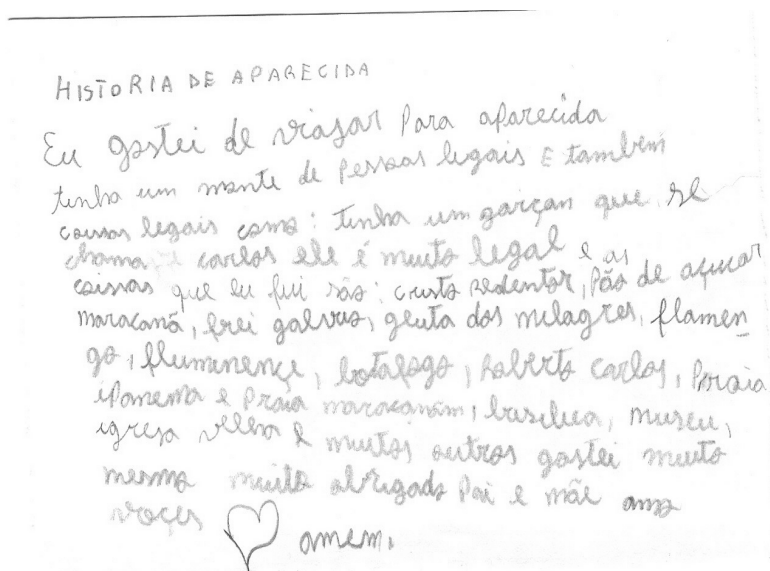 HISTORIA DE APARECIDA
Eu gostei de viajar Para aparecida
tinha um monte de Pessoas legais E tambem
coisas legais como: tinha um garçon que se
chama carlos ele é muito legal e as
coissas que eu fui são: cristo Redentor, Pão de açucar
maracanã, frei galvão, gruta dos milagres, flamen-
go, fluminençe, botafogo, Roberto carlos, Praia
iPanema e Praia maracanãm, basilica, museu,
igreja velha e muitos outros gostei muito
mesmo muito obrigado Pai e mãe amo
voçes
amem.